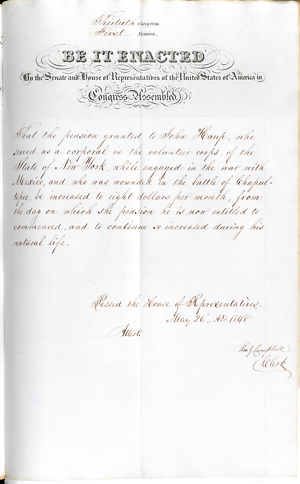 Thirtieth Congress
First Session
BE IT ENACTED
By the Senate and House of Representatives of the United States of America in
Congress Assembled,
That the pension granted to John Haup, who
served as a corporal in the volunteer corps, of the
State of New York, while engaged in the war with
Mexico, and who was wounded in the battle of Chapul-
tepec, be increased to eight dollars per month, from
the day on which the pension he is now entitled to
commenced, and to continue so increased during his
natural life.
Passed the House of Representatives
May 26 AD 1848
Attest
Thos J Campbell
Clerk